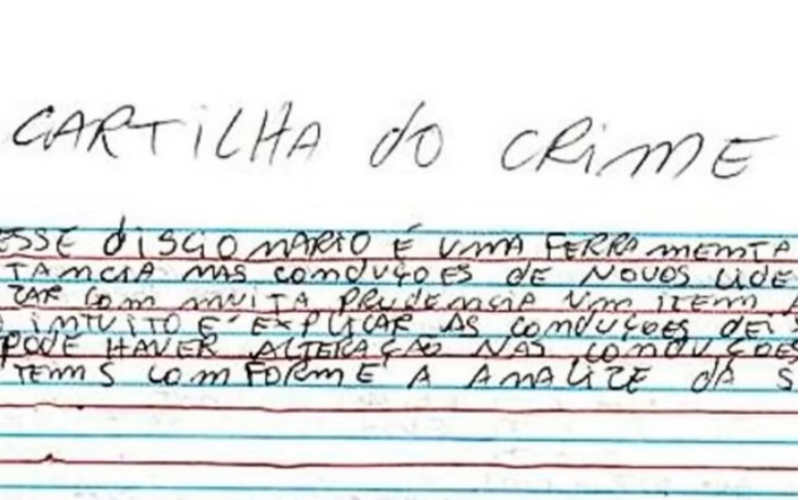 CARTILHA do CRIME
ESSE disCIONARIO É UMA FERRAMENTA
TANCIA NAS CONDUÇOES DE NOVOS LIDE
ZAR COM MUITA PRUDENCIA UM ITEM A
INTUITO E EXPLICAR AS CONDUÇOES DEIS
PODE HAVER ALTERAÇÃO NAS CONDUÇOES
TENS CONFORME A ANALIZE DA S